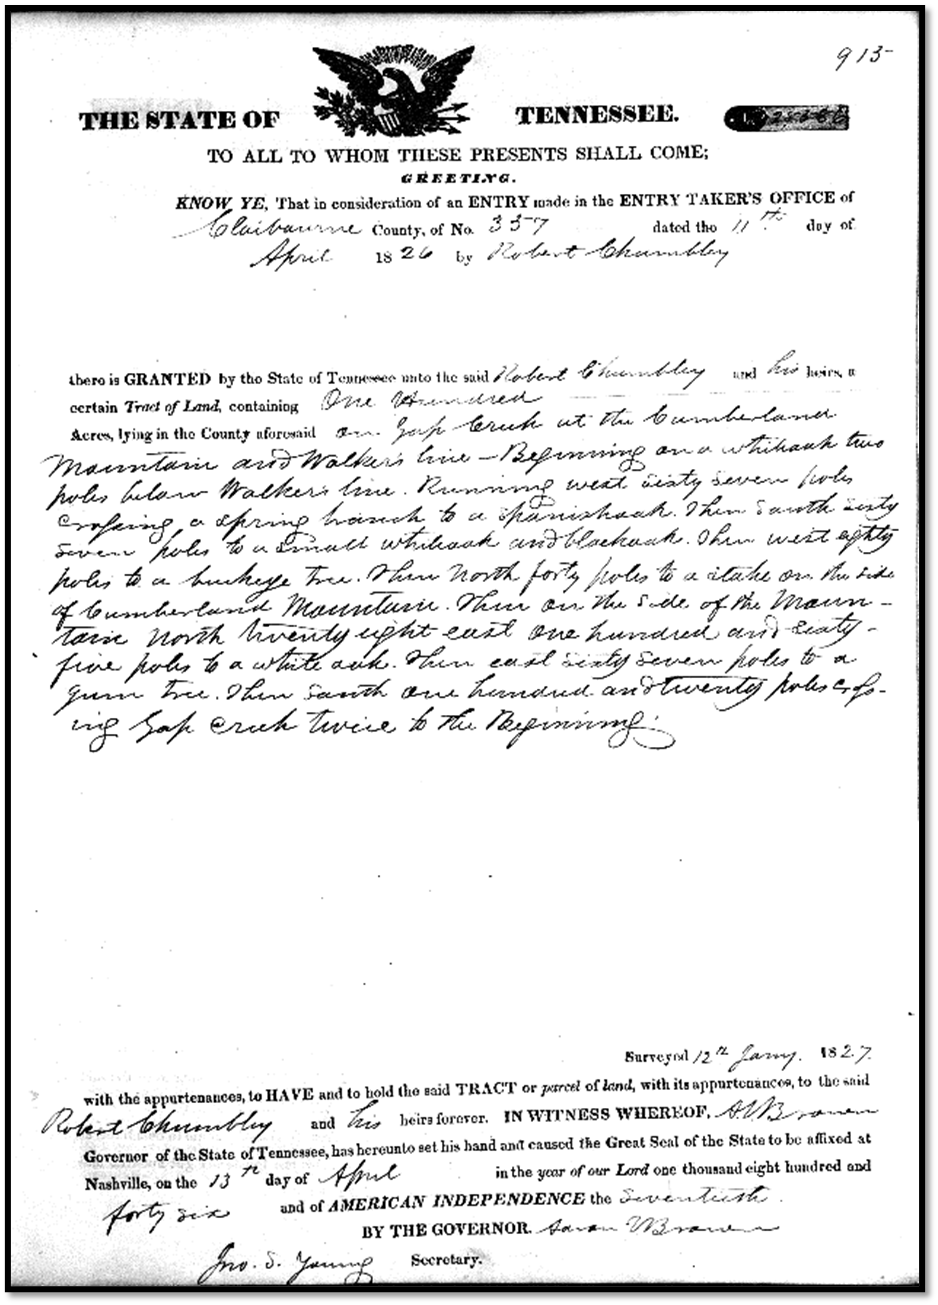 913
THE STATE OF TENNESSEE.
TO ALL TO WHOM THESE PRESENTS SHALL COME;
GREETING.
KNOW YE, That in consideration of an ENTRY made in the ENTRY TAKER'S OFFICE of
Claibourne County, of No. 337 dated the 11th day of
April 1826 by Robert Chumbley
there is GRANTED by the State of Tennessee unto the said Robert Chumbley and his heirs, a
certain Tract of Land, containing One Hundred
Acres, lying in the County aforesaid on Gap Creek at the Cumberland
Mountain and Walker's line - Beginning on a whiteoak two
poles below Walker's line. Running west sixty seven poles
crossing a spring branch to a spanishoak. Then South sixty
seven poles to a small whiteoak and blackoak. Then west eighty
poles to a buckeye tree. Then North forty poles to a stake on the side
of Cumberland Mountain. Then on the side of the Moun-
tain North twenty eight east one hundred and sixty-
five poles to a white oak. Then east sixty seven poles to a
gum tree. Then South one hundred and twenty poles cross-
ing Gap Creek twice to the Beginning.
Surveyed 12th Jany. 1827.
with the appurtenances, to HAVE and to hold the said TRACT or parcel of land, with its appurtenances, to the said
Robert Chumbley and his heirs forever. IN WITNESS WHEREOF, A V Brown
Governor of the State of Tennessee, has hereunto set his hand and caused the Great Seal of the State to be affixed at
Nashville, on the 13th day of April in the year of our Lord one thousand eight hundred and
forty six and of AMERICAN INDEPENDENCE the Seventieth.
BY THE GOVERNOR. Aaron V Brown
Jno. S. Young Secretary.